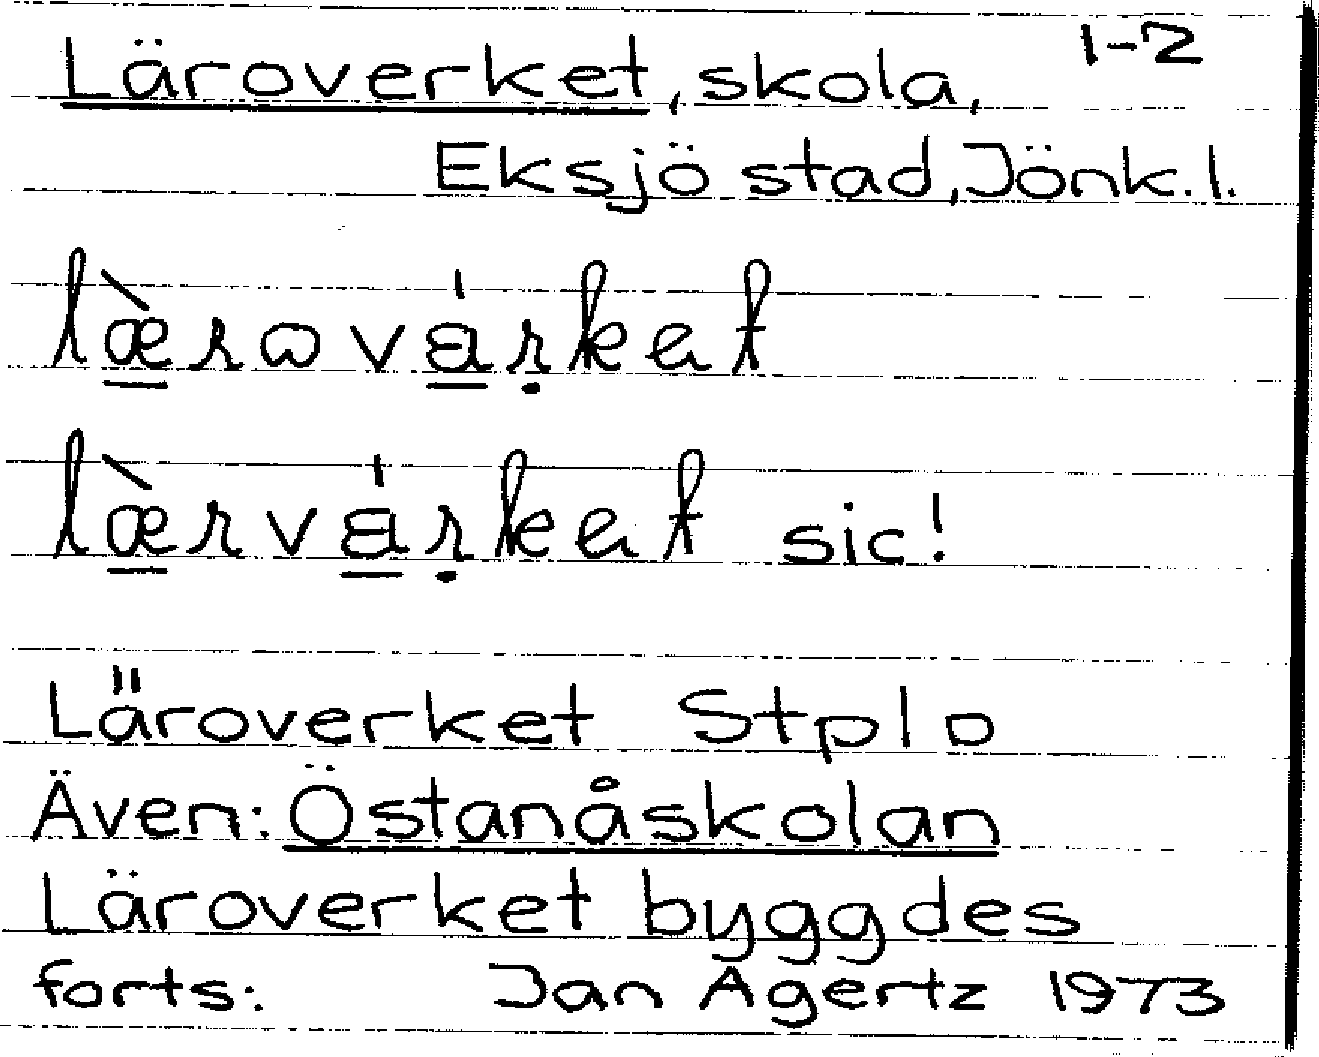 Läroverket, skola, 1-2
Eksjö stad, Jönk. l.
læ̀rωvárket
læ̀rvárket sic!
Läroverket Stplo
Även: Östanåskolan
Läroverket byggdes
forts: Jan Agertz 1973